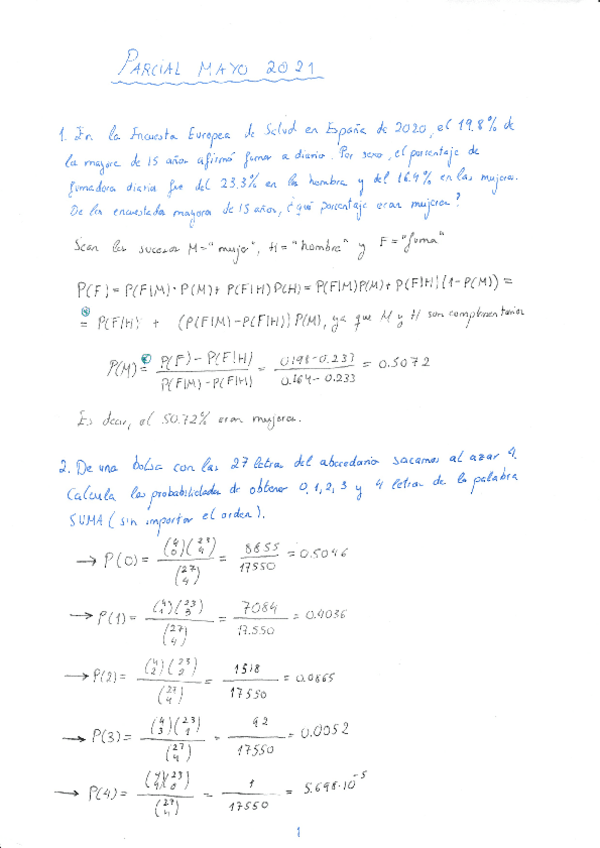 PARCIAL MAYO 2021
1. En la Encuesta Europea de Salud en España de 2020, el 19.8% de
la mayores de 15 años afirmó fumar a diario. Por sexo, el porcentaje de
fumadores diarios fue del 23.3% en los hombres y del 16.4% en las mujeres.
De los encuestados mayores de 15 años, ¿qué porcentaje eran mujeres?
Sean los sucesos M="mujer", H="hombre" y F="fuma"
P(F) = P(F|M)·P(M)+ P(F|H)P(H) = P(F|M)P(M)+ P(F|H)(1-P(M)) =
= P(F|H) + (P(F|M)-P(F|H))P(M), ya que M y H son complementarios
P(M) = P(F) - P(F|H) / P(F|M) - P(F|H) = 0.198-0.233 / 0.164-0.233 = 0.5072
Es decir, el 50.72% eran mujeres.
2. De una bolsa con las 27 letras del abecedario sacamos al azar 4.
Calcula las probabilidades de obtener 0,1,2,3 y 4 letras de la palabra
SUMA (sin importar el orden).
→ P(0) = (4 0)(23 4) / (27 4) = 8855 / 17550 = 0.5046
→ P(1) = (4 1)(23 3) / (27 4) = 7084 / 17550 = 0.4036
→ P(2) = (4 2)(23 2) / (27 4) = 1518 / 17550 = 0.0865
→ P(3) = (4 3)(23 1) / (27 4) = 92 / 17550 = 0.0052
→ P(4) = (4 4)(23 0) / (27 4) = 1 / 17550 = 5.698·10^-5
1